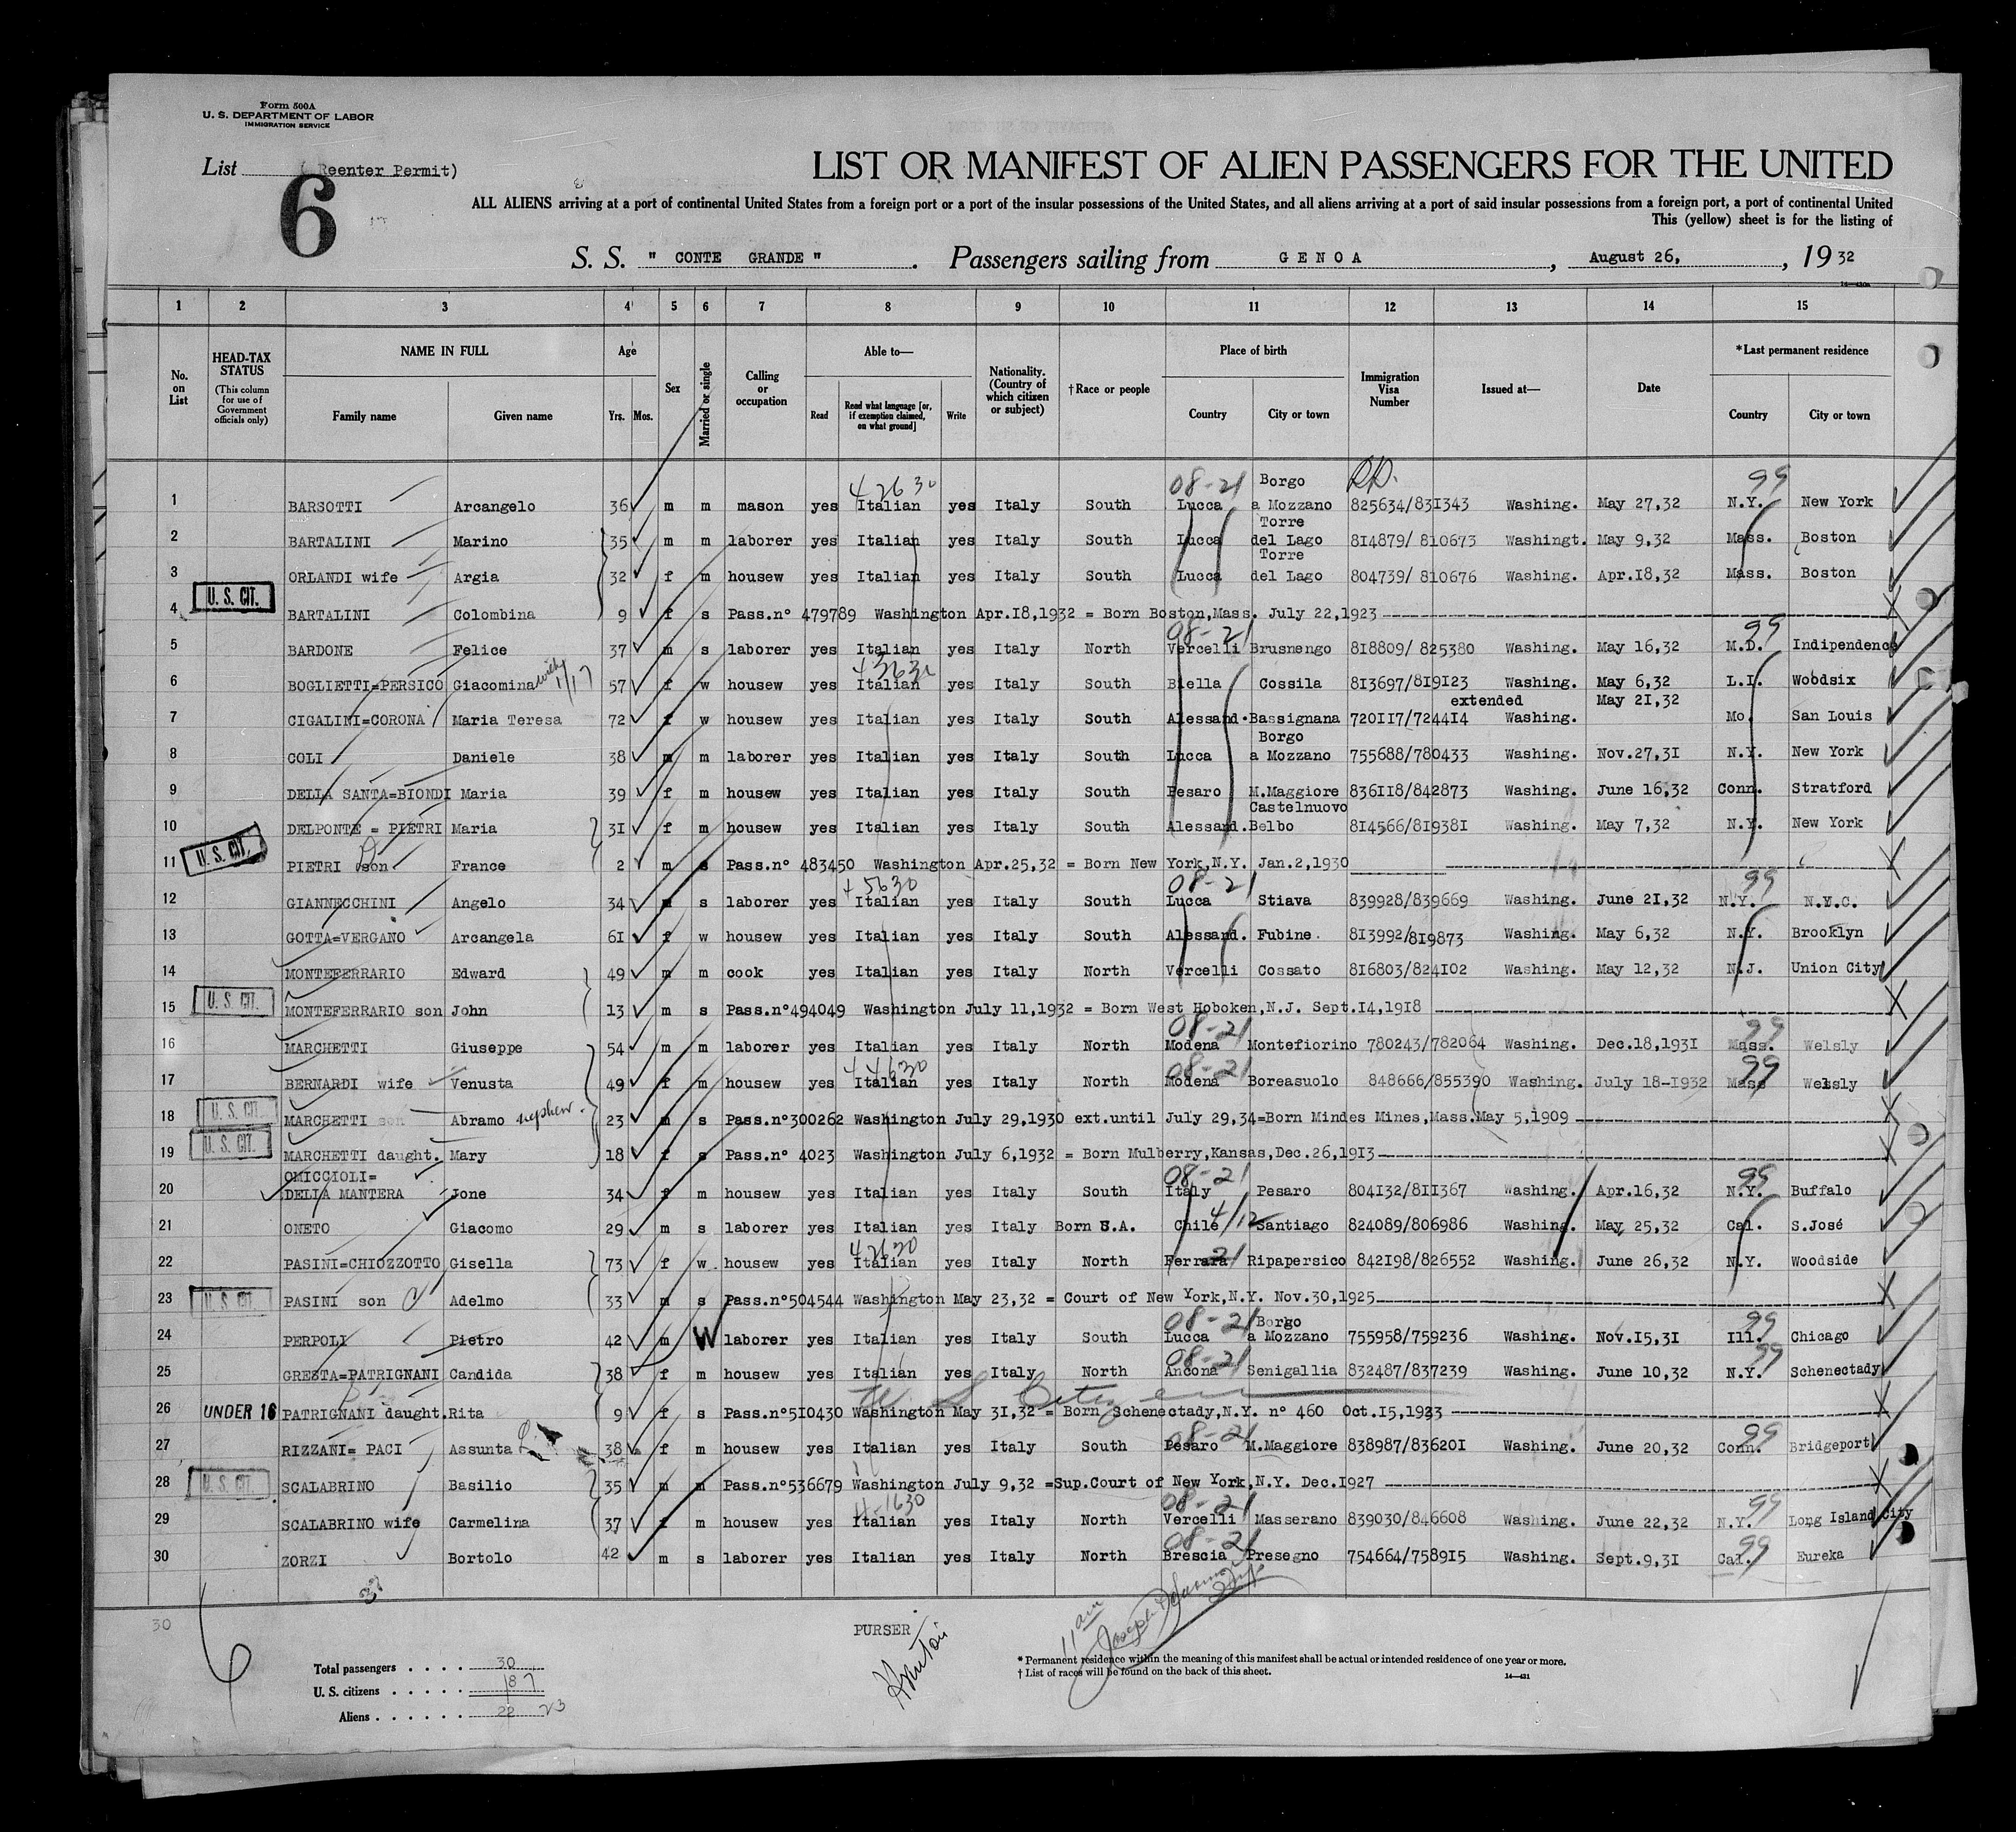 Form 500A
U. S. DEPARTMENT OF LABOR
IMMIGRATION SERVICE
List (Reenter Permit)
6
LIST OR MANIFEST OF ALIEN PASSENGERS FOR THE UNITED
ALL ALIENS arriving at a port of continental United States from a foreign port or a port of the insular possessions of the United States, and all aliens arriving at a port of said insular possessions from a foreign port, a port of continental United
This (yellow) sheet is for the listing of
S. S. " CONTE GRANDE ". Passengers sailing from GENOA, August 26, 1932
1 2 3 4 5 6 7 8 9 10 11 12 13 14 15
No. on List
HEAD-TAX STATUS (This column for use of Government officials only)
NAME IN FULL
Family name Given name
Age
Yrs. Mos.
Sex
Married or single
Calling or occupation
Able to—
Read Read what language [or, if exemption claimed, on what ground] Write
Nationality. (Country of which citizen or subject)
† Race or people
Place of birth
Country City or town
Immigration Visa Number
Issued at—
Date
*Last permanent residence
Country City or town
08-21 Borgo 99
1 BARSOTTI Arcangelo 36 m m mason yes Italian yes Italy South Lucca a Mozzano 825634/831343 Washing. May 27,32 N.Y. New York
Torre
2 BARTALINI Marino 35 m m laborer yes Italian yes Italy South Lucca del Lago 814879/ 810673 Washingt. May 9,32 Mass. Boston
Torre
3 ORLANDI wife Argia 32 f m housew yes Italian yes Italy South Lucca del Lago 804739/ 810676 Washing. Apr.18,32 Mass. Boston
U. S. CIT.
4 BARTALINI Colombina 9 f s Pass.n° 479789 Washington Apr.18,1932 = Born Boston,Mass. July 22,1923
08-21 99
5 BARDONE Felice 37 m s laborer yes Italian yes Italy North Vercelli Brusnengo 818809/ 825380 Washing. May 16,32 M.D. Indipendence
6 BOGLIETTI=PERSICO Giacomina 57 f w housew yes Italian yes Italy South Biella Cossila 813697/819123 Washing. May 6,32 L.I. Woodsix
extended May 21,32
7 CIGALINI=CORONA Maria Teresa 72 f w housew yes Italian yes Italy South Alessand. Bassignana 720117/724414 Washing. Mo. San Louis
Borgo
8 COLI Daniele 38 m m laborer yes Italian yes Italy South Lucca a Mozzano 755688/780433 Washing. Nov.27,31 N.Y. New York
9 DELLA SANTA=BIONDI Maria 39 f m housew yes Italian yes Italy South Pesaro M.Maggiore 836118/842873 Washing. June 16,32 Conn. Stratford
Castelnuovo
10 DELPONTE = PIETRI Maria 31 f m housew yes Italian yes Italy South Alessand. Belbo 814566/819381 Washing. May 7,32 N.Y. New York
U. S. CIT.
11 PIETRI son France 2 m s Pass.n° 483450 Washington Apr.25,32 = Born New York,N.Y. Jan.2,1930
08-21 99
12 GIANNECCHINI Angelo 34 m s laborer yes Italian yes Italy South Lucca Stiava 839928/839669 Washing. June 21,32 N.Y. N.Y.C.
13 GOTTA=VERGANO Arcangela 61 f w housew yes Italian yes Italy South Alessand. Fubine. 813992/819873 Washing. May 6,32 N.Y. Brooklyn
14 MONTEFERRARIO Edward 49 m m cook yes Italian yes Italy North Vercelli Cossato 816803/824102 Washing. May 12,32 N.J. Union City
U. S. CIT.
15 MONTEFERRARIO son John 13 m s Pass.n°494049 Washington July 11,1932 = Born West Hoboken,N.J. Sept.14,1918
08-21 99
16 MARCHETTI Giuseppe 54 m m laborer yes Italian yes Italy North Modena Montefiorino 780243/782064 Washing. Dec.18,1931 Mass. Welsly
08-21 99
17 BERNARDI wife Venusta 49 f m housew yes Italian yes Italy North Modena Boreasuolo 848666/855390 Washing. July 18-1932 Mass Welssly
U. S. CIT.
18 MARCHETTI son Abramo nephew 23 m s Pass.n°300262 Washington July 29,1930 ext.until July 29,34=Born Mindes Mines,Mass.May 5,1909
U. S. CIT.
19 MARCHETTI daught. Mary 18 f s Pass.n° 4023 Washington July 6,1932 = Born Mulberry,Kansas,Dec.26,1913
OMICCIOLI= 08-21 99
20 DELLA MANTERA Jone 34 f m housew yes Italian yes Italy South Italy Pesaro 804132/811367 Washing. Apr.16,32 N.Y. Buffalo
21 ONETO Giacomo 29 m s laborer yes Italian yes Italy Born S.A. Chile Santiago 824089/806986 Washing. May 25,32 Cal. S.José
22 PASINI=CHIOZZOTTO Gisella 73 f w. housew yes Italian yes Italy North Ferrara Ripapersico 842198/826552 Washing. June 26,32 N.Y. Woodside
U. S. CIT.
23 PASINI son Adelmo 33 m s Pass.n°504544 Washington May 23,32 = Court of New York,N.Y. Nov.30,1925
08-21 Borgo 99
24 PERPOLI Pietro 42 m W laborer yes Italian yes Italy South Lucca a Mozzano 755958/759236 Washing. Nov.15,31 Ill. Chicago
08-21 99
25 GRESTA=PATRIGNANI Candida 38 f m housew yes Italian yes Italy North Ancona Senigallia 832487/837239 Washing. June 10,32 N.Y. Schenectady
U S Citizen
26 UNDER 16 PATRIGNANI daught. Rita 9 f s Pass.n°510430 Washington May 31,32 = Born Schenectady,N.Y. n° 460 Oct.15,1923
08-21 99
27 RIZZANI= PACI Assunta 38 f m housew yes Italian yes Italy South Pesaro M.Maggiore 838987/836201 Washing. June 20,32 Conn. Bridgeport
U. S. CIT.
28 SCALABRINO Basilio 35 m m Pass.n°536679 Washington July 9,32 =Sup.Court of New York,N.Y. Dec.1927
08-21 99
29 SCALABRINO wife Carmelina 37 f m housew yes Italian yes Italy North Vercelli Masserano 839030/846608 Washing. June 22,32 N.Y. Long Island City
08-21 99
30 ZORZI Bortolo 42 m s laborer yes Italian yes Italy North Brescia Presegno 754664/758915 Washing. Sept.9,31 Cal. Eureka
30
PURSER
11 am
Total passengers . . . . 30
U. S. citizens . . . . . 8 7
Aliens . . . . . . 22 23
* Permanent residence within the meaning of this manifest shall be actual or intended residence of one year or more.
† List of races will be found on the back of this sheet.
14—431